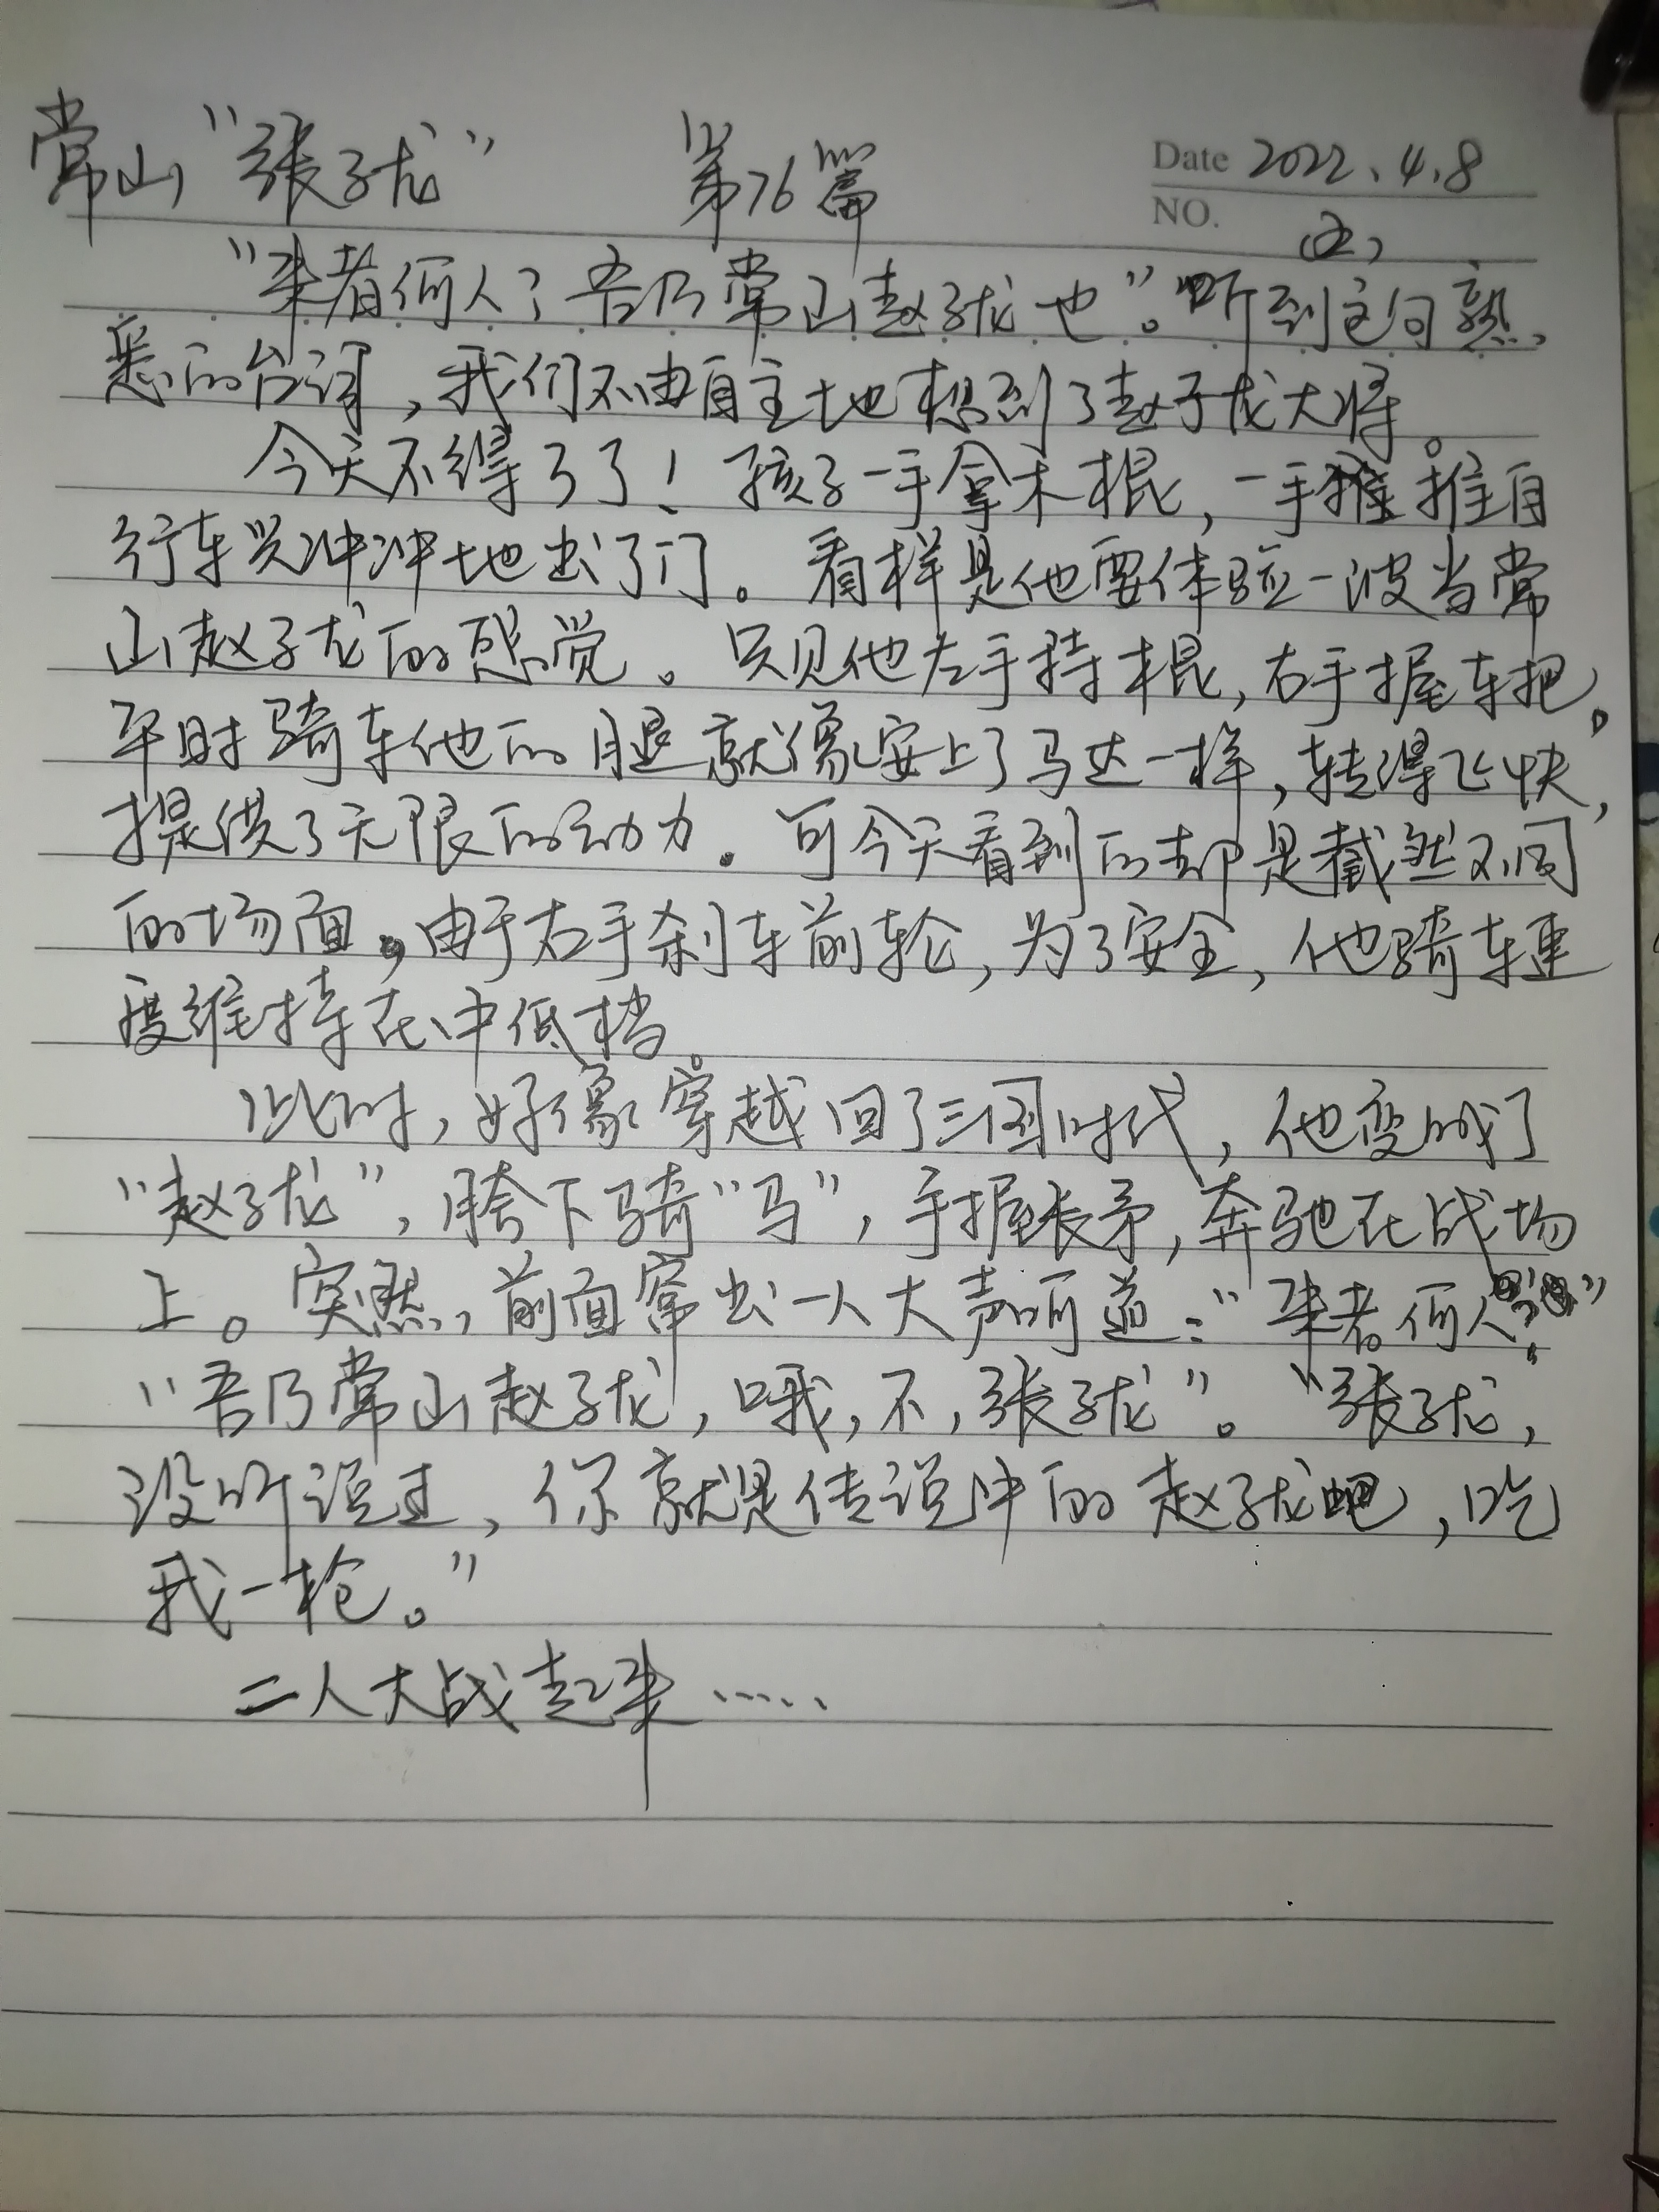 常山“张子龙” 第76篇 Date 2022.4.8
NO. (五)
“来者何人？吾乃常山赵子龙也”。听到这句熟
悉的台词，我们不由自主地想到了赵子龙大将。
今天不得了了！孩子一手拿木棍，一手推推自
行车兴冲冲地出了门。看样是他要体验一波当常
山赵子龙的感觉。只见他左手持棍，右手握车把。
平时骑车他的腿就像安上了马达一样，转得飞快，
提供了无限的动力。可今天看到的却是截然不同
的场面，由于右手刹车前轮，为了安全，他骑车速
度维持在中低档。
此时，好像穿越回了三国时代，他变成了
“赵子龙”，胯下骑“马”，手握长矛，奔驰在战场
上。突然，前面窜出一人大声呵道：“来者何人？”
“吾乃常山赵子龙，哦，不，张子龙”。“张子龙，
没听说过，你就是传说中的赵子龙吧，吃
我一枪。”
二人大战起来……